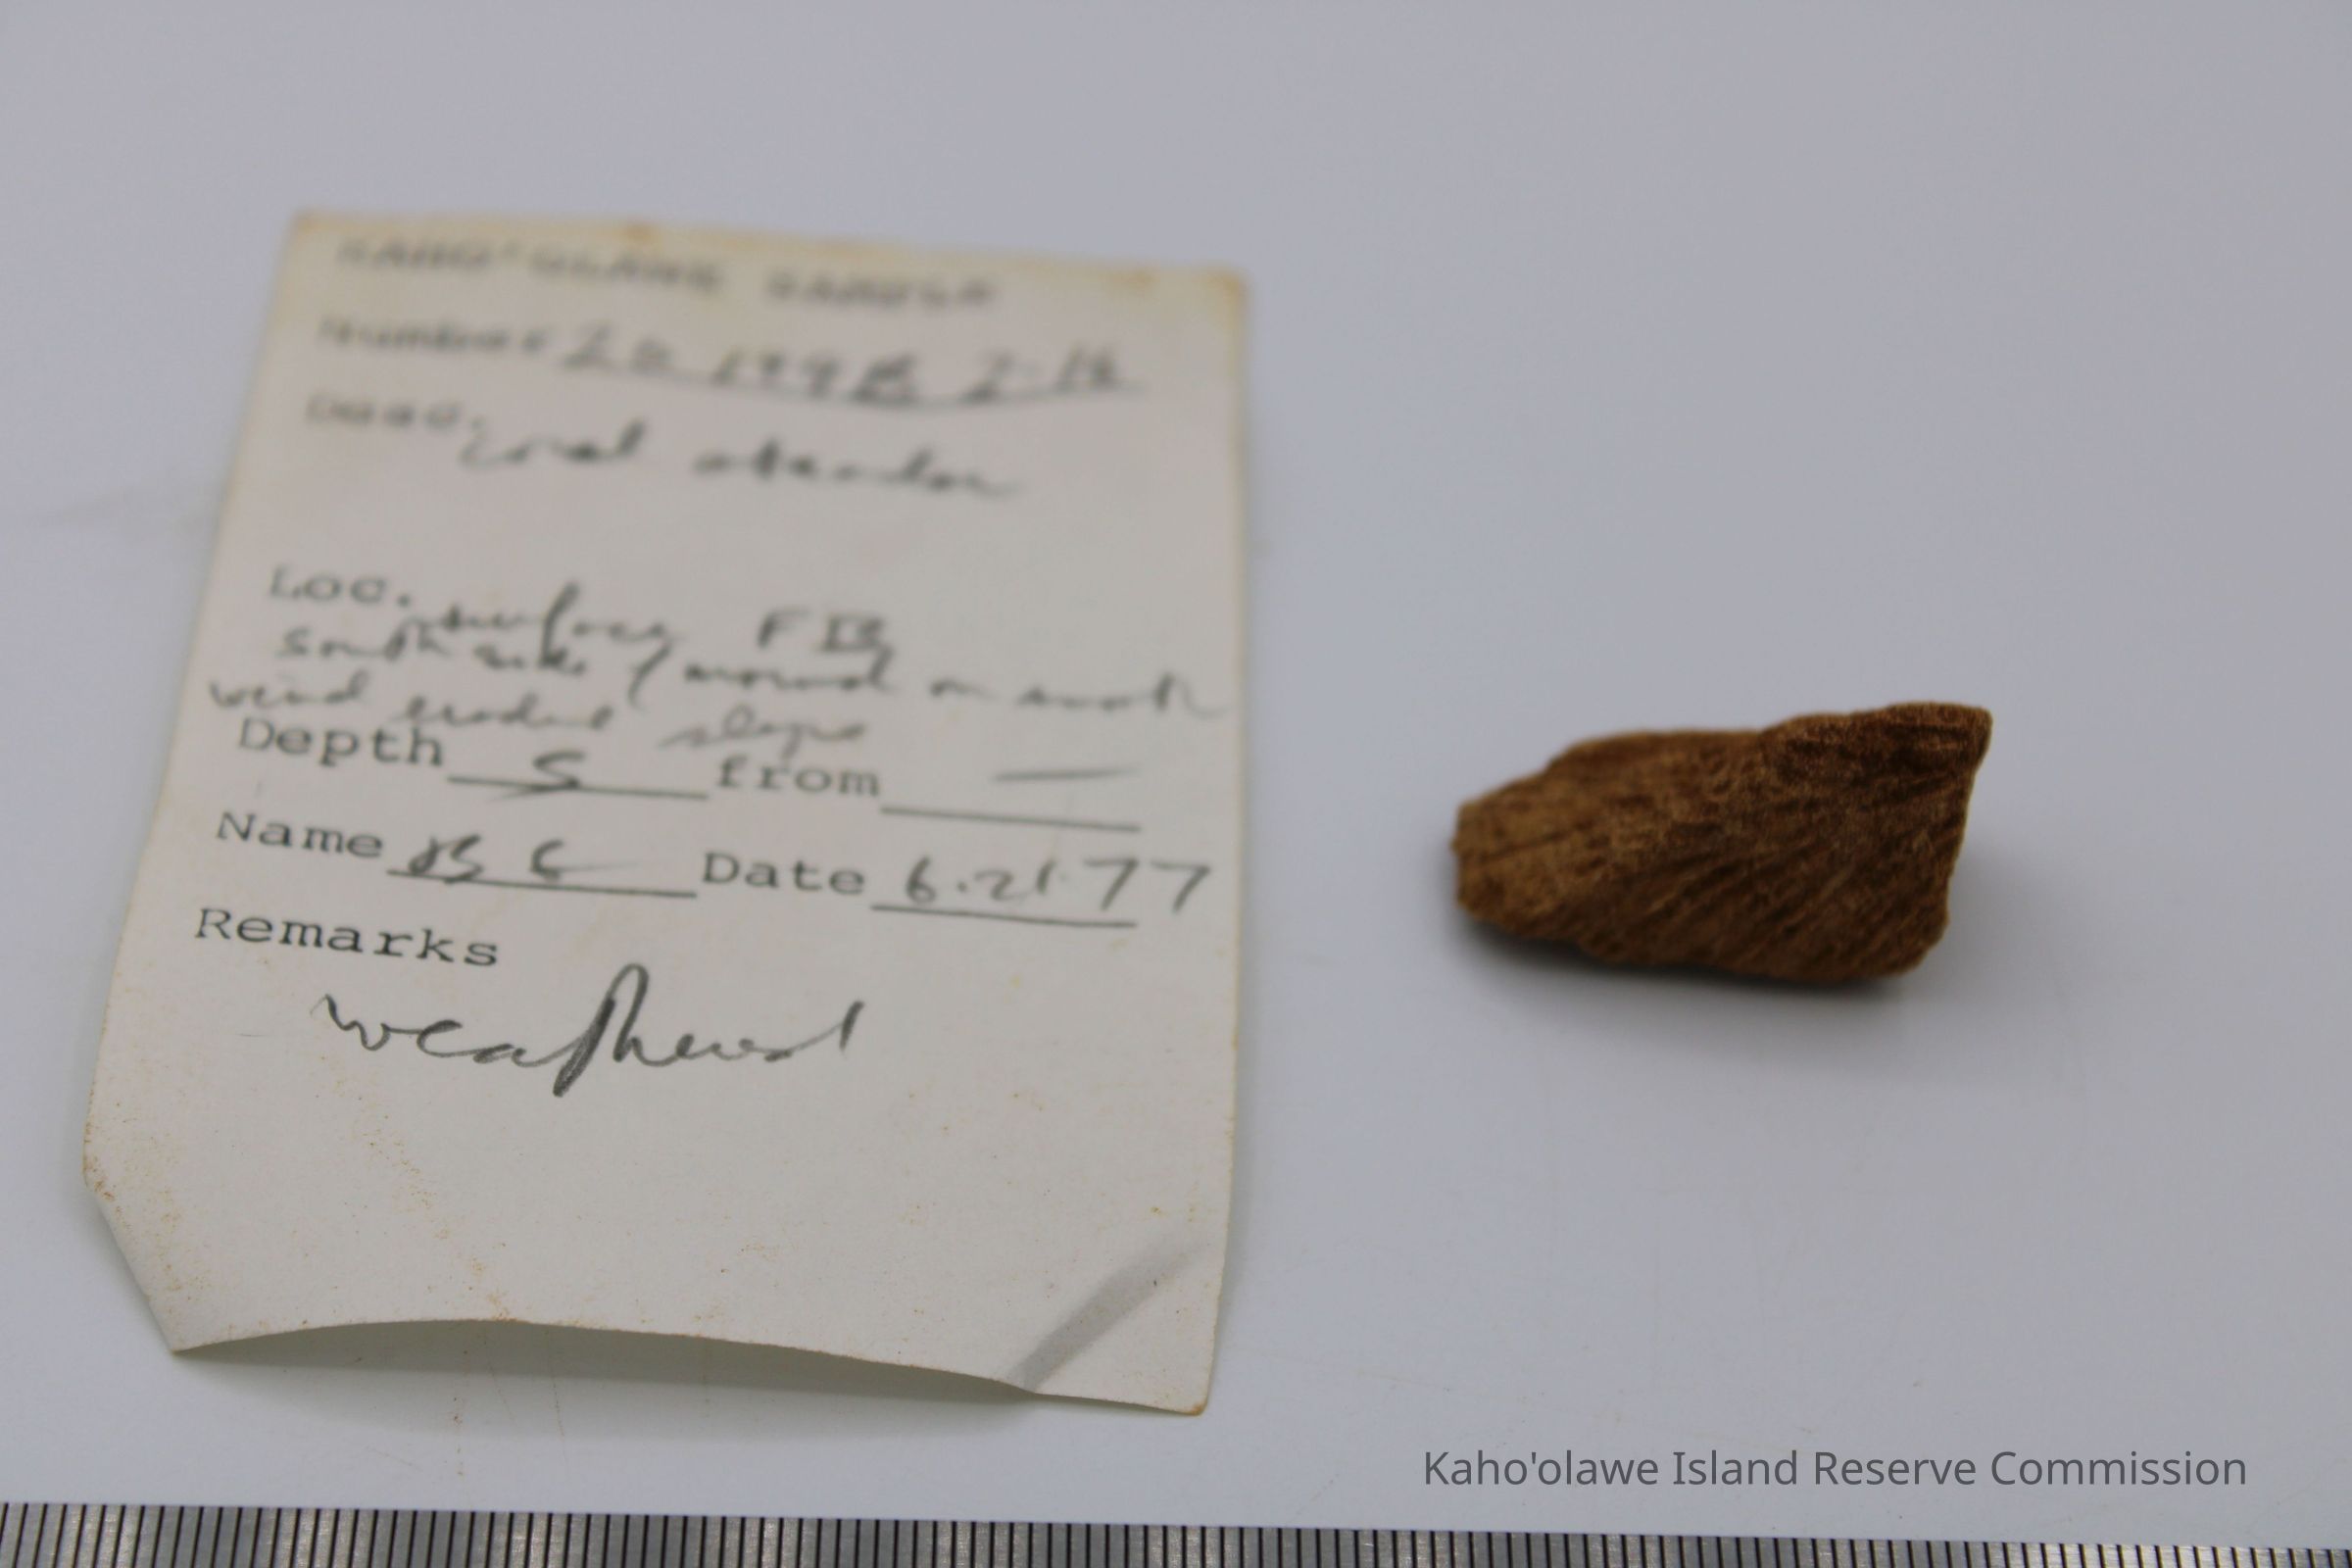 KAHO'OLAWE SAMPLE
Number 20 199B 2-16
Desc. coral abrader
Loc. surface FB
South side / mound on south
wind eroded slope
Depth S from —
Name BG Date 6.21.77
Remarks
weathered
Kaho'olawe Island Reserve Commission